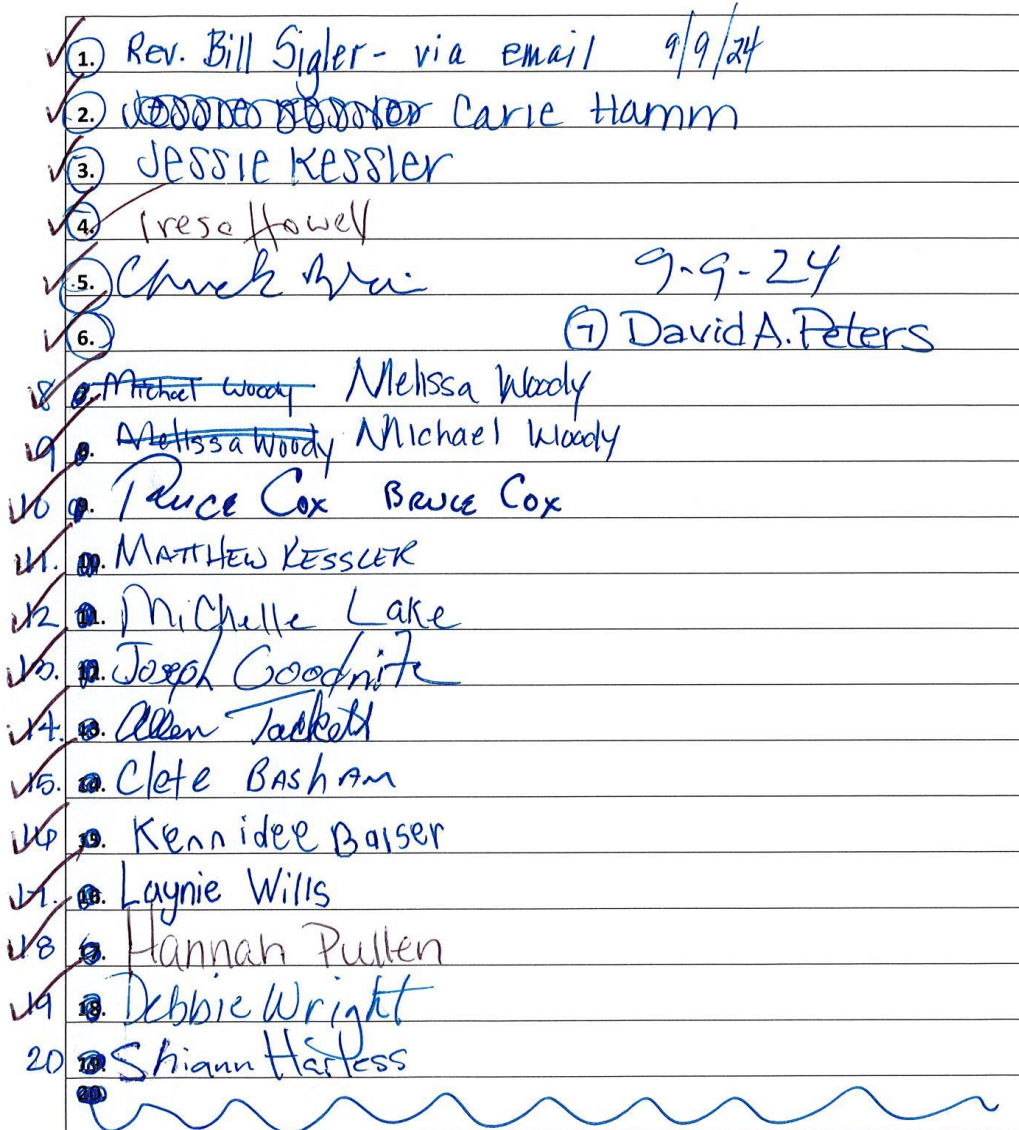 1. Rev. Bill Sigler - via email 9/9/24
2. Carie Hamm
3. Jessie Kessler
4. Tresa Howell
5. Chuck 9-9-24
6. 7 David A. Peters
8 Michael Woody Melissa Woody
9 8. Melissa Woody Michael Woody
10 9. Bruce Cox Bruce Cox
11. 10. Matthew Kessler
12 11. Michelle Lake
13. 12. Joseph Goodnite
14. 13. Allen Tackett
15. 14. Clete Basham
16 15. Kennidee Balser
17. 16. Laynie Wills
18 17. Hannah Pullen
19 18. Debbie Wright
20 19. Shiann Harless
20.